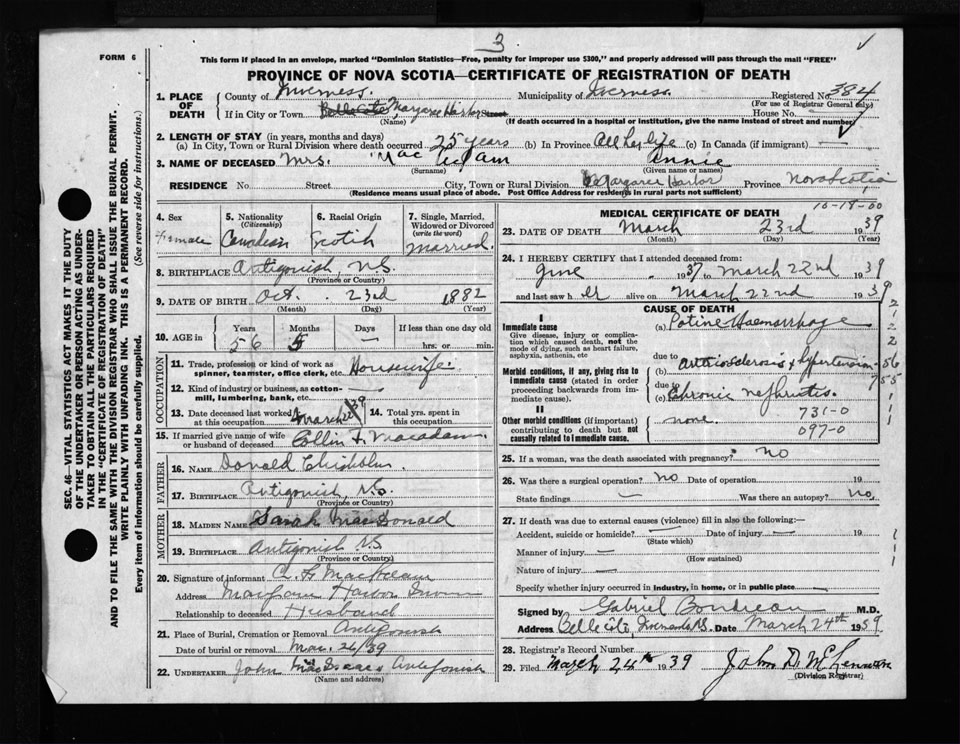 3
FORM 6
This form if placed in an envelope, marked "Dominion Statistics—Free, penalty for improper use $300," and properly addressed will pass through the mail "FREE"
PROVINCE OF NOVA SCOTIA—CERTIFICATE OF REGISTRATION OF DEATH
SEC. 46—VITAL STATISTICS ACT MAKES IT THE DUTY OF THE UNDERTAKER OR PERSON ACTING AS UNDERTAKER TO OBTAIN ALL THE PARTICULARS REQUIRED IN THE "CERTIFICATE OF REGISTRATION OF DEATH"
AND TO FILE THE SAME WITH THE DIVISION REGISTRAR WHO SHALL ISSUE THE BURIAL PERMIT.
WRITE PLAINLY WITH UNFADING INK. THIS IS A PERMANENT RECORD.
Every item of Information should be carefully supplied. (See reverse side for instructions.)
1. PLACE OF DEATH County of Inverness. Municipality of Inverness. Registered No. 384
(For use of Registrar General only)
If in City or Town Margaree Harbor Street House No.
(Name) (If death occurred in a hospital or institution, give the name instead of street and number)
2. LENGTH OF STAY (in years, months and days)
(a) In City, Town or Rural Division where death occurred 25 years (b) In Province All her life (c) In Canada (if immigrant) —
3. NAME OF DECEASED Mrs. Mac Annie
(Surname) (Given name or names)
RESIDENCE No. Street City, Town or Rural Division Margaree Harbor Province Nova Scotia
(Residence means usual place of abode. Post Office Address for residents in rural parts not sufficient)
10-19-00
4. Sex Female
5. Nationality (Citizenship) Canadian
6. Racial Origin Scotch
7. Single, Married, Widowed or Divorced (write the word) Married.
8. BIRTHPLACE Antigonish, N.S.
(Province or Country)
9. DATE OF BIRTH Oct. 23rd 1882
(Month) (Day) (Year)
10. AGE in Years 56 Months 5 Days — If less than one day old hrs. or min.
OCCUPATION
11. Trade, profession or kind of work as spinner, teamster, office clerk, etc. Housewife.
12. Kind of industry or business, as cotton-mill, lumbering, bank, etc.
13. Date deceased last worked at this occupation March 39
14. Total yrs. spent in this occupation
15. If married give name of wife or husband of deceased Collin F. Macadam
FATHER
16. NAME Donald Chisholm.
17. BIRTHPLACE Antigonish, N.S.
(Province or Country)
MOTHER
18. MAIDEN NAME Sarah MacDonald
19. BIRTHPLACE Antigonish N.S
(Province or Country)
20. Signature of informant
Address Harbor
Relationship to deceased Husband
21. Place of Burial, Cremation or Removal Antigonish
Date of burial or removal Mar. 26/39
22. UNDERTAKER John MacIsaac Antigonish
(Name and address)
MEDICAL CERTIFICATE OF DEATH
23. DATE OF DEATH March 23rd 1939
(Month) (Day) (Year)
24. I HEREBY CERTIFY that I attended deceased from:
June 1937 to March 22nd 1939
and last saw her alive on March 22nd 1939
CAUSE OF DEATH
I
Immediate cause
Give disease, injury or complication which caused death, not the mode of dying, such as heart failure, asphyxia, asthenia, etc
(a) Haemorrhage
due to
Morbid conditions, if any, giving rise to immediate cause (stated in order proceeding backwards from immediate cause).
(b) Arteriosclerosis & Hypertension
due to
(c) Chronic nephritis.
II
Other morbid conditions (if important) contributing to death but not causally related to immediate cause.
none.
731-0
097-0
25. If a woman, was the death associated with pregnancy? no
26. Was there a surgical operation? no Date of operation 19
State findings — Was there an autopsy? no.
27. If death was due to external causes (violence) fill in also the following:—
Accident, suicide or homicide? — Date of injury — 19
(State which)
Manner of injury —
(How sustained)
Nature of injury —
Specify whether injury occurred in industry, in home, or in public place
Signed by Gabriel Boudreau M.D.
Address Date March 24th 1939
28. Registrar's Record Number
29. Filed March 24th 1939 John D. McLennan
(Division Registrar)